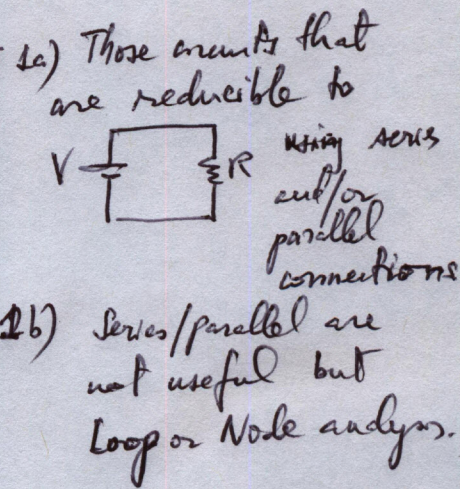 1a) Those circuits that
are reducible to
V R using series
and/or
parallel
connections
1b) Series/parallel are
not useful but
Loop or Node analysis.